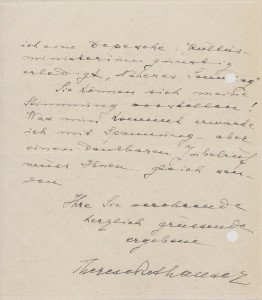 ich eine Depesche: "Kultus-
ministerium günstig
erledigt, Näheres Sonntag"
Sie können sich meine
Stimmung vorstellen!
Was nun kommt erwarte
ich mit Spannung – aber
einen dankbaren Jubelruf
muss Ihnen gleich sen-
den
Ihre Sie verehrende
herzlich grüssende
ergebene
Therese Rothauser